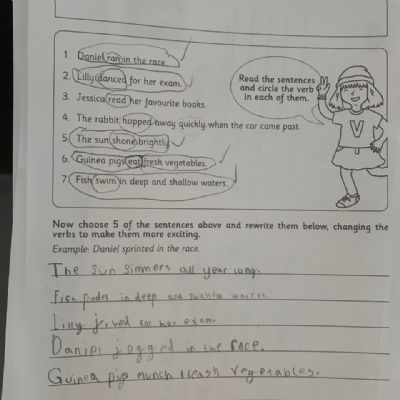 1. Daniel ran in the race.
2. Lilly danced for her exam.
3. Jessica read her favourite books.
4. The rabbit hopped away quickly when the car came past.
5. The sun shone brightly.
6. Guinea pigs eat fresh vegetables.
7. Fish swim in deep and shallow waters.
Read the sentences
and circle the verb
in each of them.
V
Now choose 5 of the sentences above and rewrite them below, changing the
verbs to make them more exciting.
Example: Daniel sprinted in the race.
The sun simmers all year long.
Fish in deep and shallow waters.
Lilly jived for her exam.
Daniel jogged in the race.
Guinea pigs munch freash vegetables.